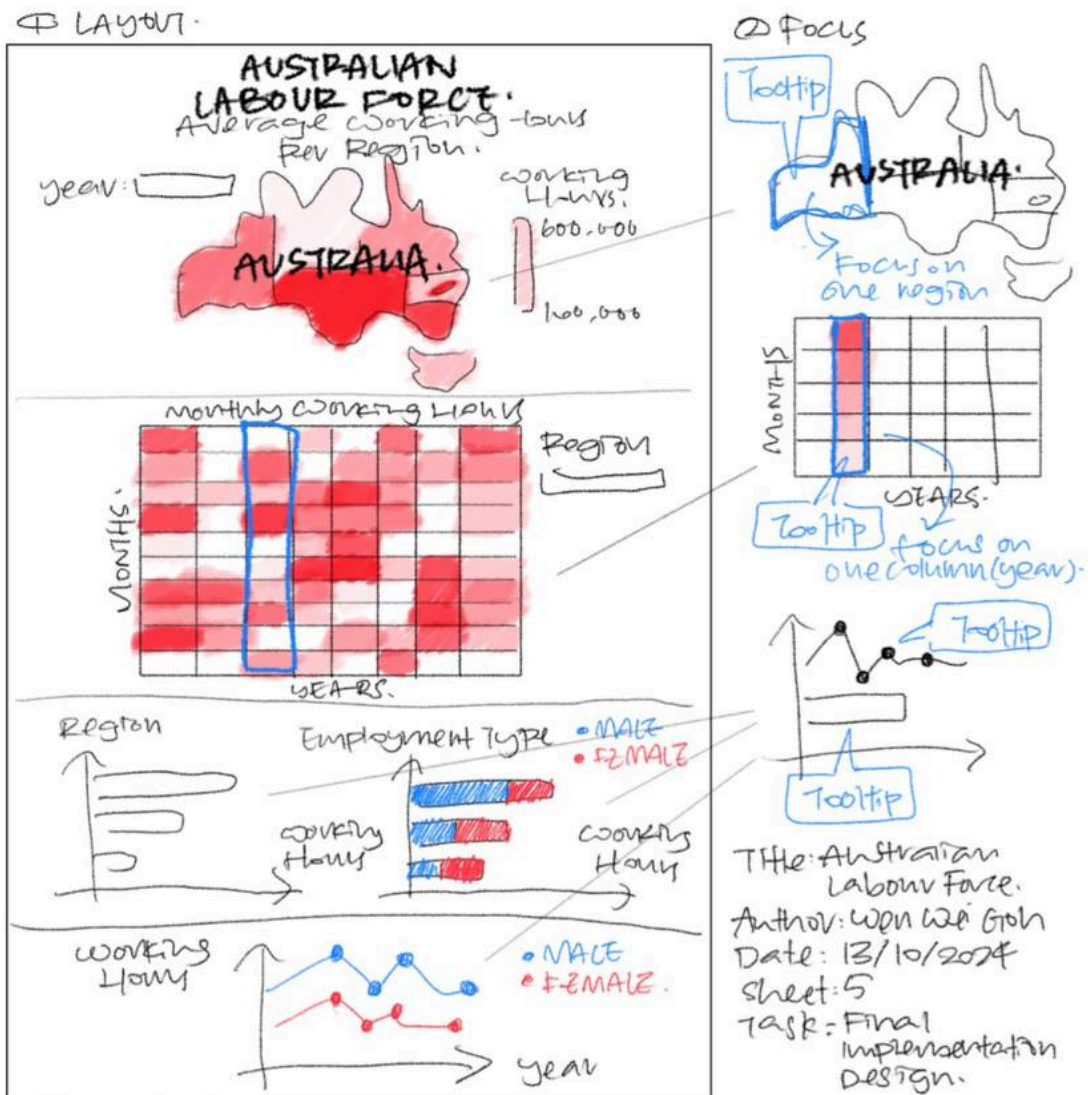 ① LAYOUT.
AUSTRALIAN
LABOUR FORCE.
Average Working Hours
Per Region.
year:
Working
Hours.
600,000
100,000
AUSTRALIA.
Monthly Working Hours
Region
MONTHS.
YEARS.
Region
Working
Hours
Employment Type
MALE
FEMALE
Working
Hours
Working
Hours
MALE
FEMALE.
year
② Focus
Tooltip
AUSTRALIA.
Focus on
one region
MONTHS
YEARS.
Tooltip
focus on
one column (year).
Tooltip
Tooltip
Title: Australian
Labour Force.
Author: Wen Wei Goh
Date: 13/10/2024
Sheet: 5
Task: Final
Implementation
Design.